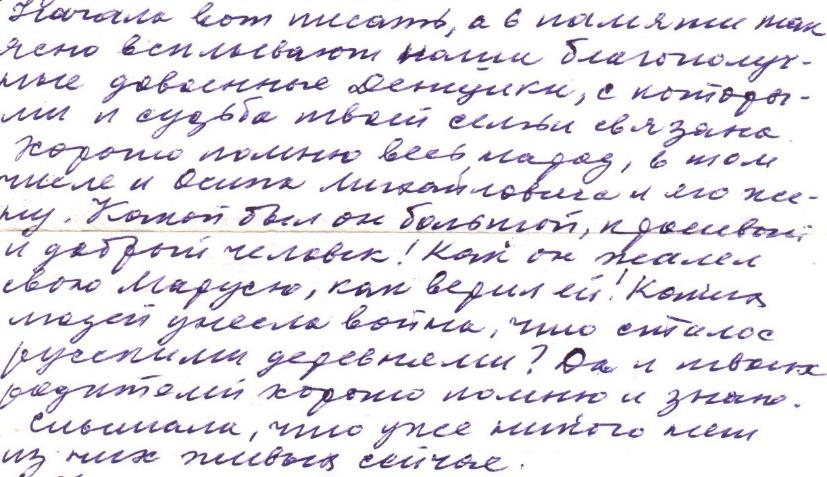 Начала вот писать, а в памяти так
ясно всплывают наши благополуч-
ные довоенные Денщики, с которы-
ми и судьба твоей семьи связана.
Хорошо помню весь народ, в том
числе и Осипа Михайловича и его же-
ну. Какой был он большой, красивый
и добрый человек! Как он жалел
свою Марусю, как верил ей! Каких
людей унесла война, что сталос
русскими деревнями? Да и твоих
родителей хорошо помню и знаю.
Слышала, что уже никого нет
из них живых сейчас.